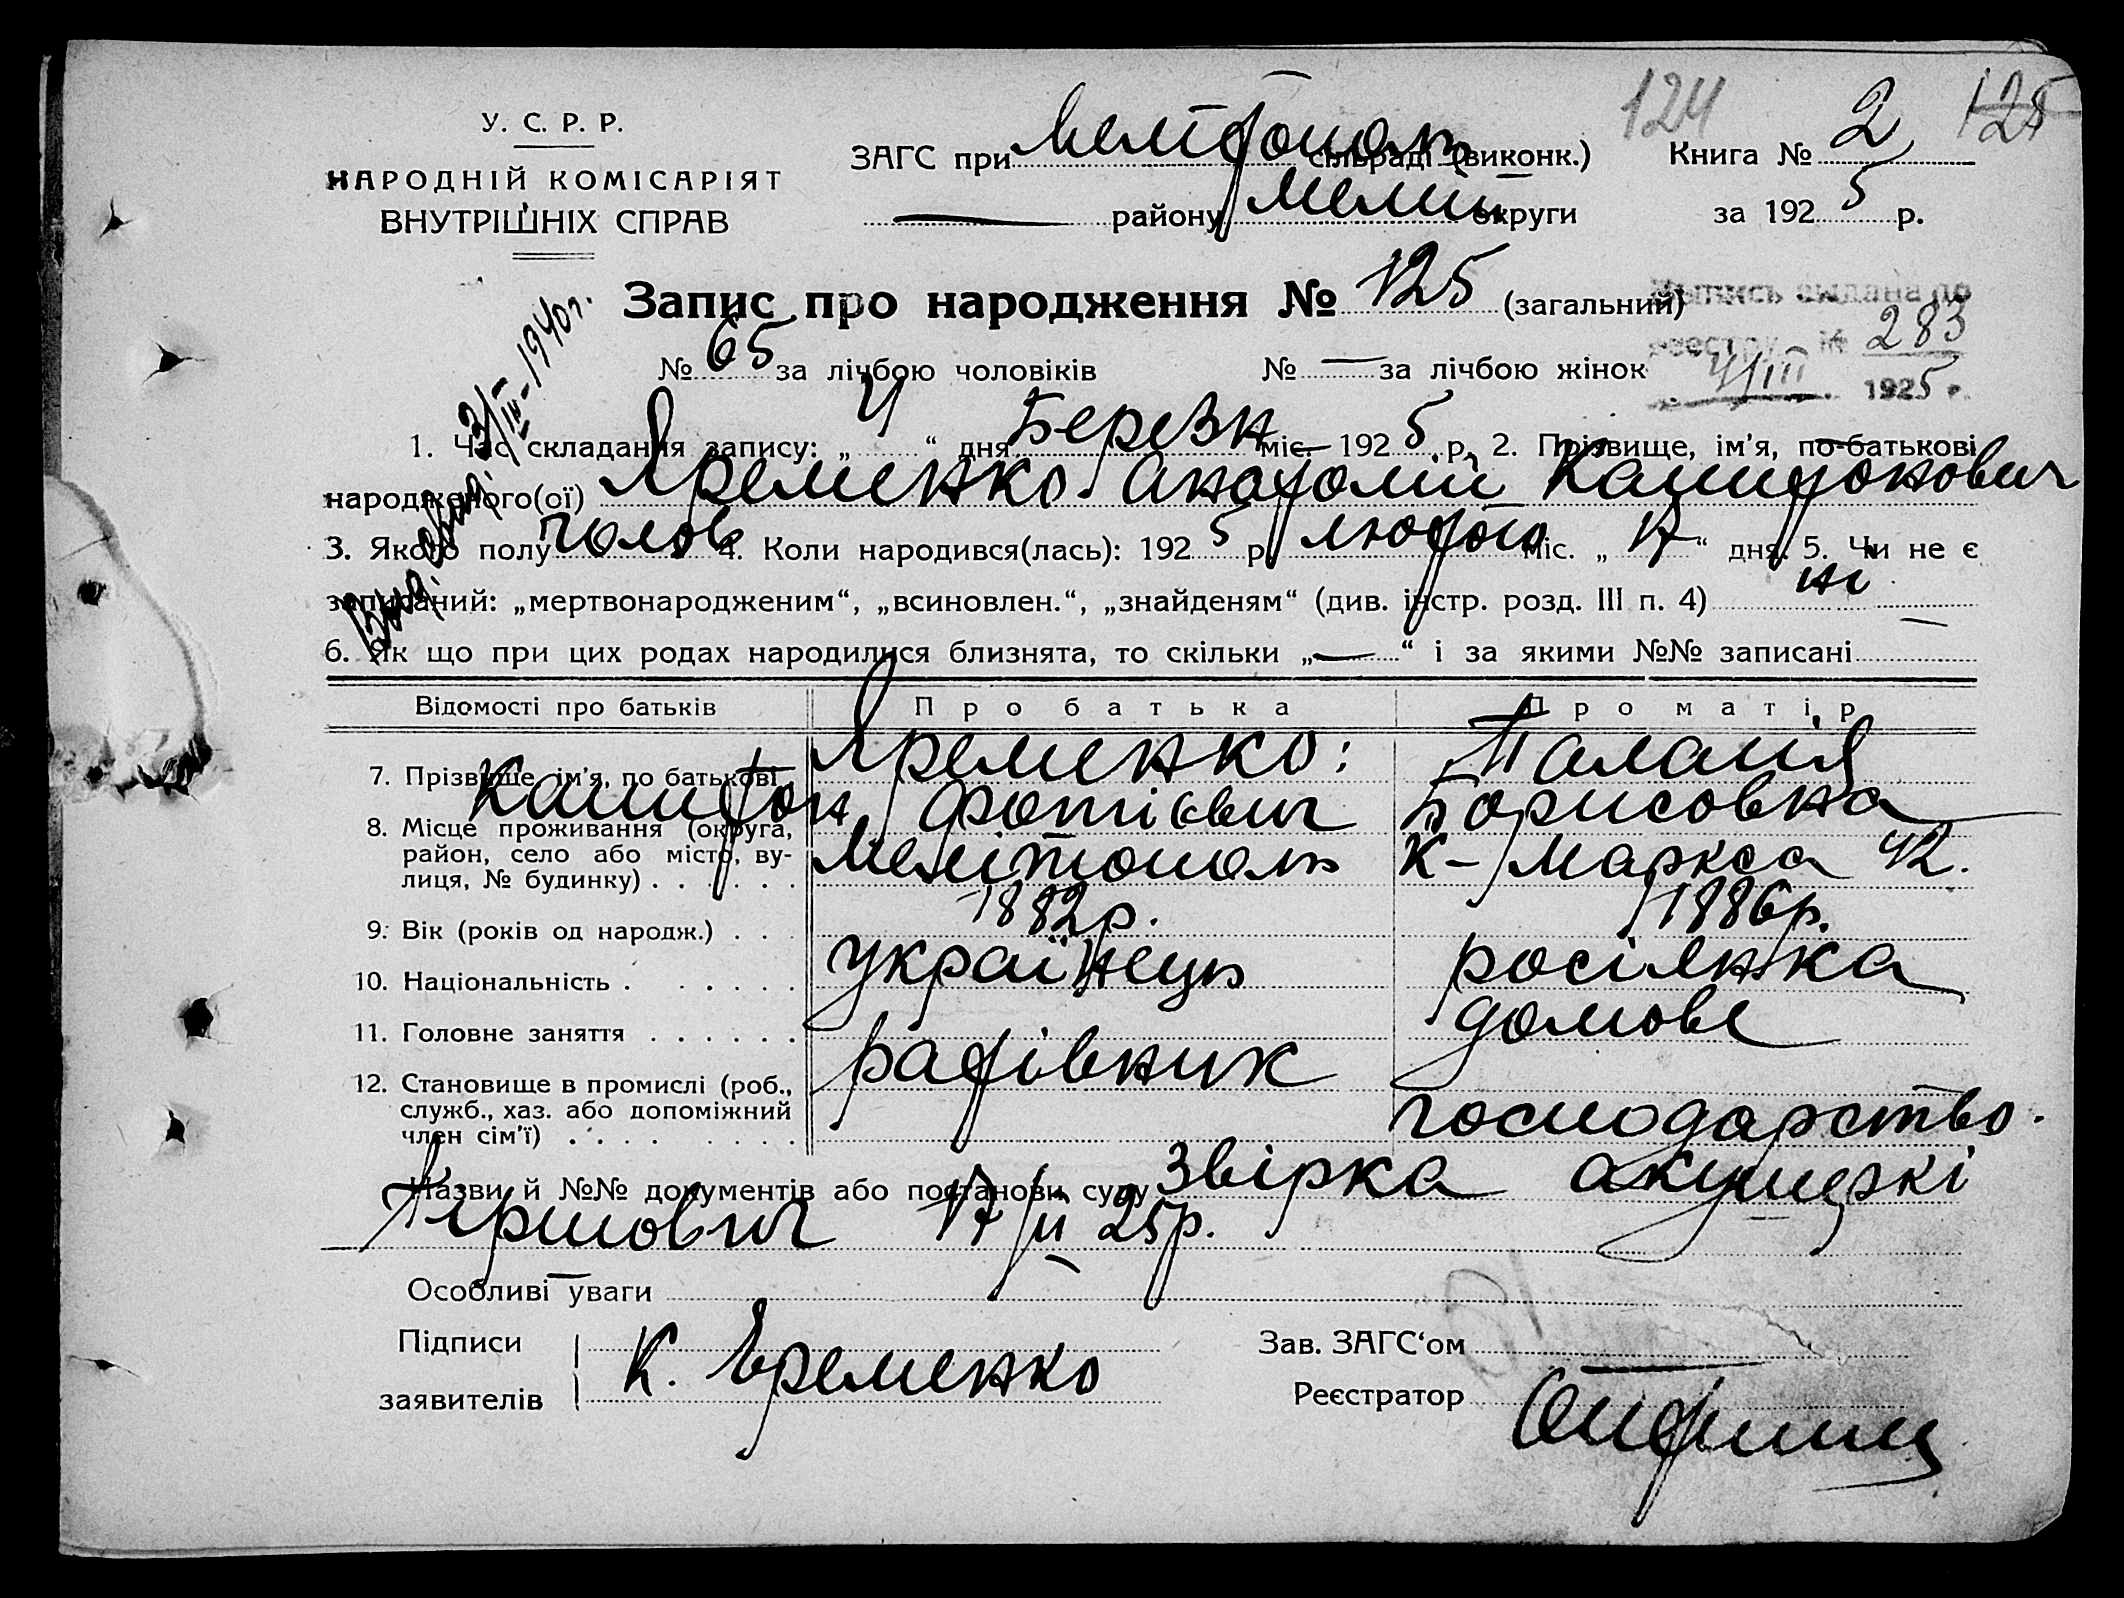 124 125
У. С. Р. Р.
НАРОДНІЙ КОМІСАРІЯТ
ВНУТРІШНІХ СПРАВ
ЗАГС при Мелітополь сільраді (виконк.) Книга № 2
району Меліт округи за 1925 р.
Запис про народження № 125 (загальний)
Выпись выдана по
реестру № 283
4/III 1925 г.
№ 65 за лічбою чоловіків № — за лічбою жінок
3/III-1940 г.
1. Час складання запису: „4“ дня Березн міс. 1925 р. 2. Прізвище, ім’я, по-батькові
народженого(ої) Яременко Анатолій Капитонович
3. Якого полу чолов 4. Коли народився(лась): 1925 р. лютого міс. „17“ дня. 5. Чи не є
записаний: „мертвонародженим“, „всиновлен.“, „знайденям“ (див. інстр. розд. III п. 4) ні
6. Як що при цих родах народилися близнята, то скільки „—“ і за якими №№ записані
Відомості про батьків Про батька Про матір
7. Прізвище, ім’я, по батькові Яременко: Капитон Фотієвич Палагія Борисовна
8. Місце проживання (округа,
район, село або місто, ву-
лиця, № будинку) Мелітополь К-Маркса 42.
9. Вік (років од народж.) 1882 р. 1886 р.
10. Національність українець росіянка
11. Головне заняття домове
12. Становище в промислі (роб.,
служб., хаз. або допоміжний
член сім’ї) господарство.
Назви й №№ документів або постанови суду Звірка акушеркі
17/II 25 р.
Особливі уваги
Підписи
заявителів К. Еременко
Зав. ЗАГС‘ом
Реєстратор